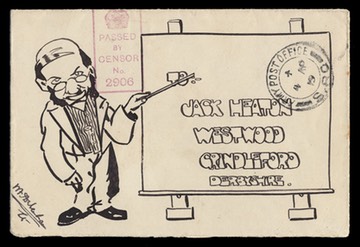 PASSED
BY
CENSOR
No.
2906
TO:-
JACK HEATON
WESTWOOD
GRINDLEFORD
DERBYSHIRE.
POST OFFICE